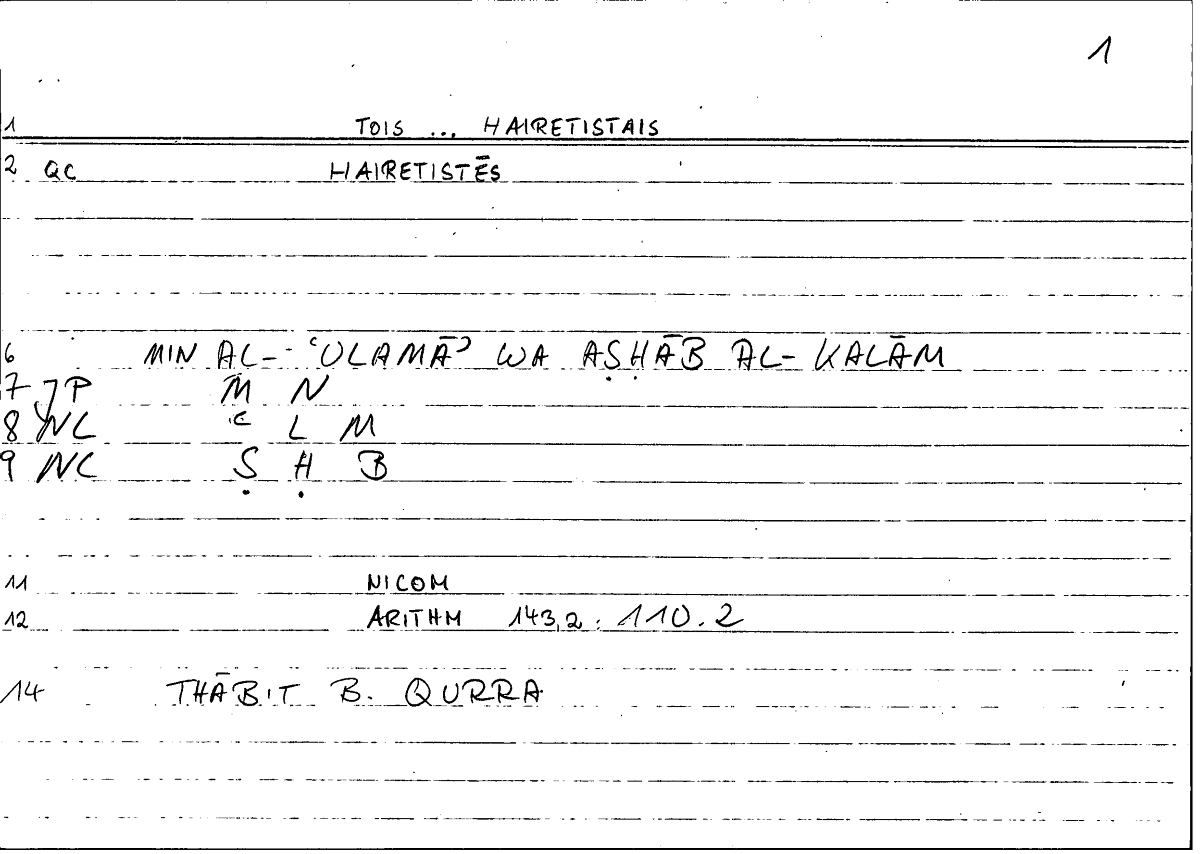 1
1 TOIS ... HAIRETISTAIS
2 QC HAIRETISTĒS
6 MIN AL-ʿULAMĀʾ WA AṢḤĀB AL-KALĀM
7 JP M N
8 NC ʿ L M
9 NC Ṣ Ḥ B
11 NICOM
12 ARITHM 143,2 : 110.2
14 THĀBIT B. QURRA